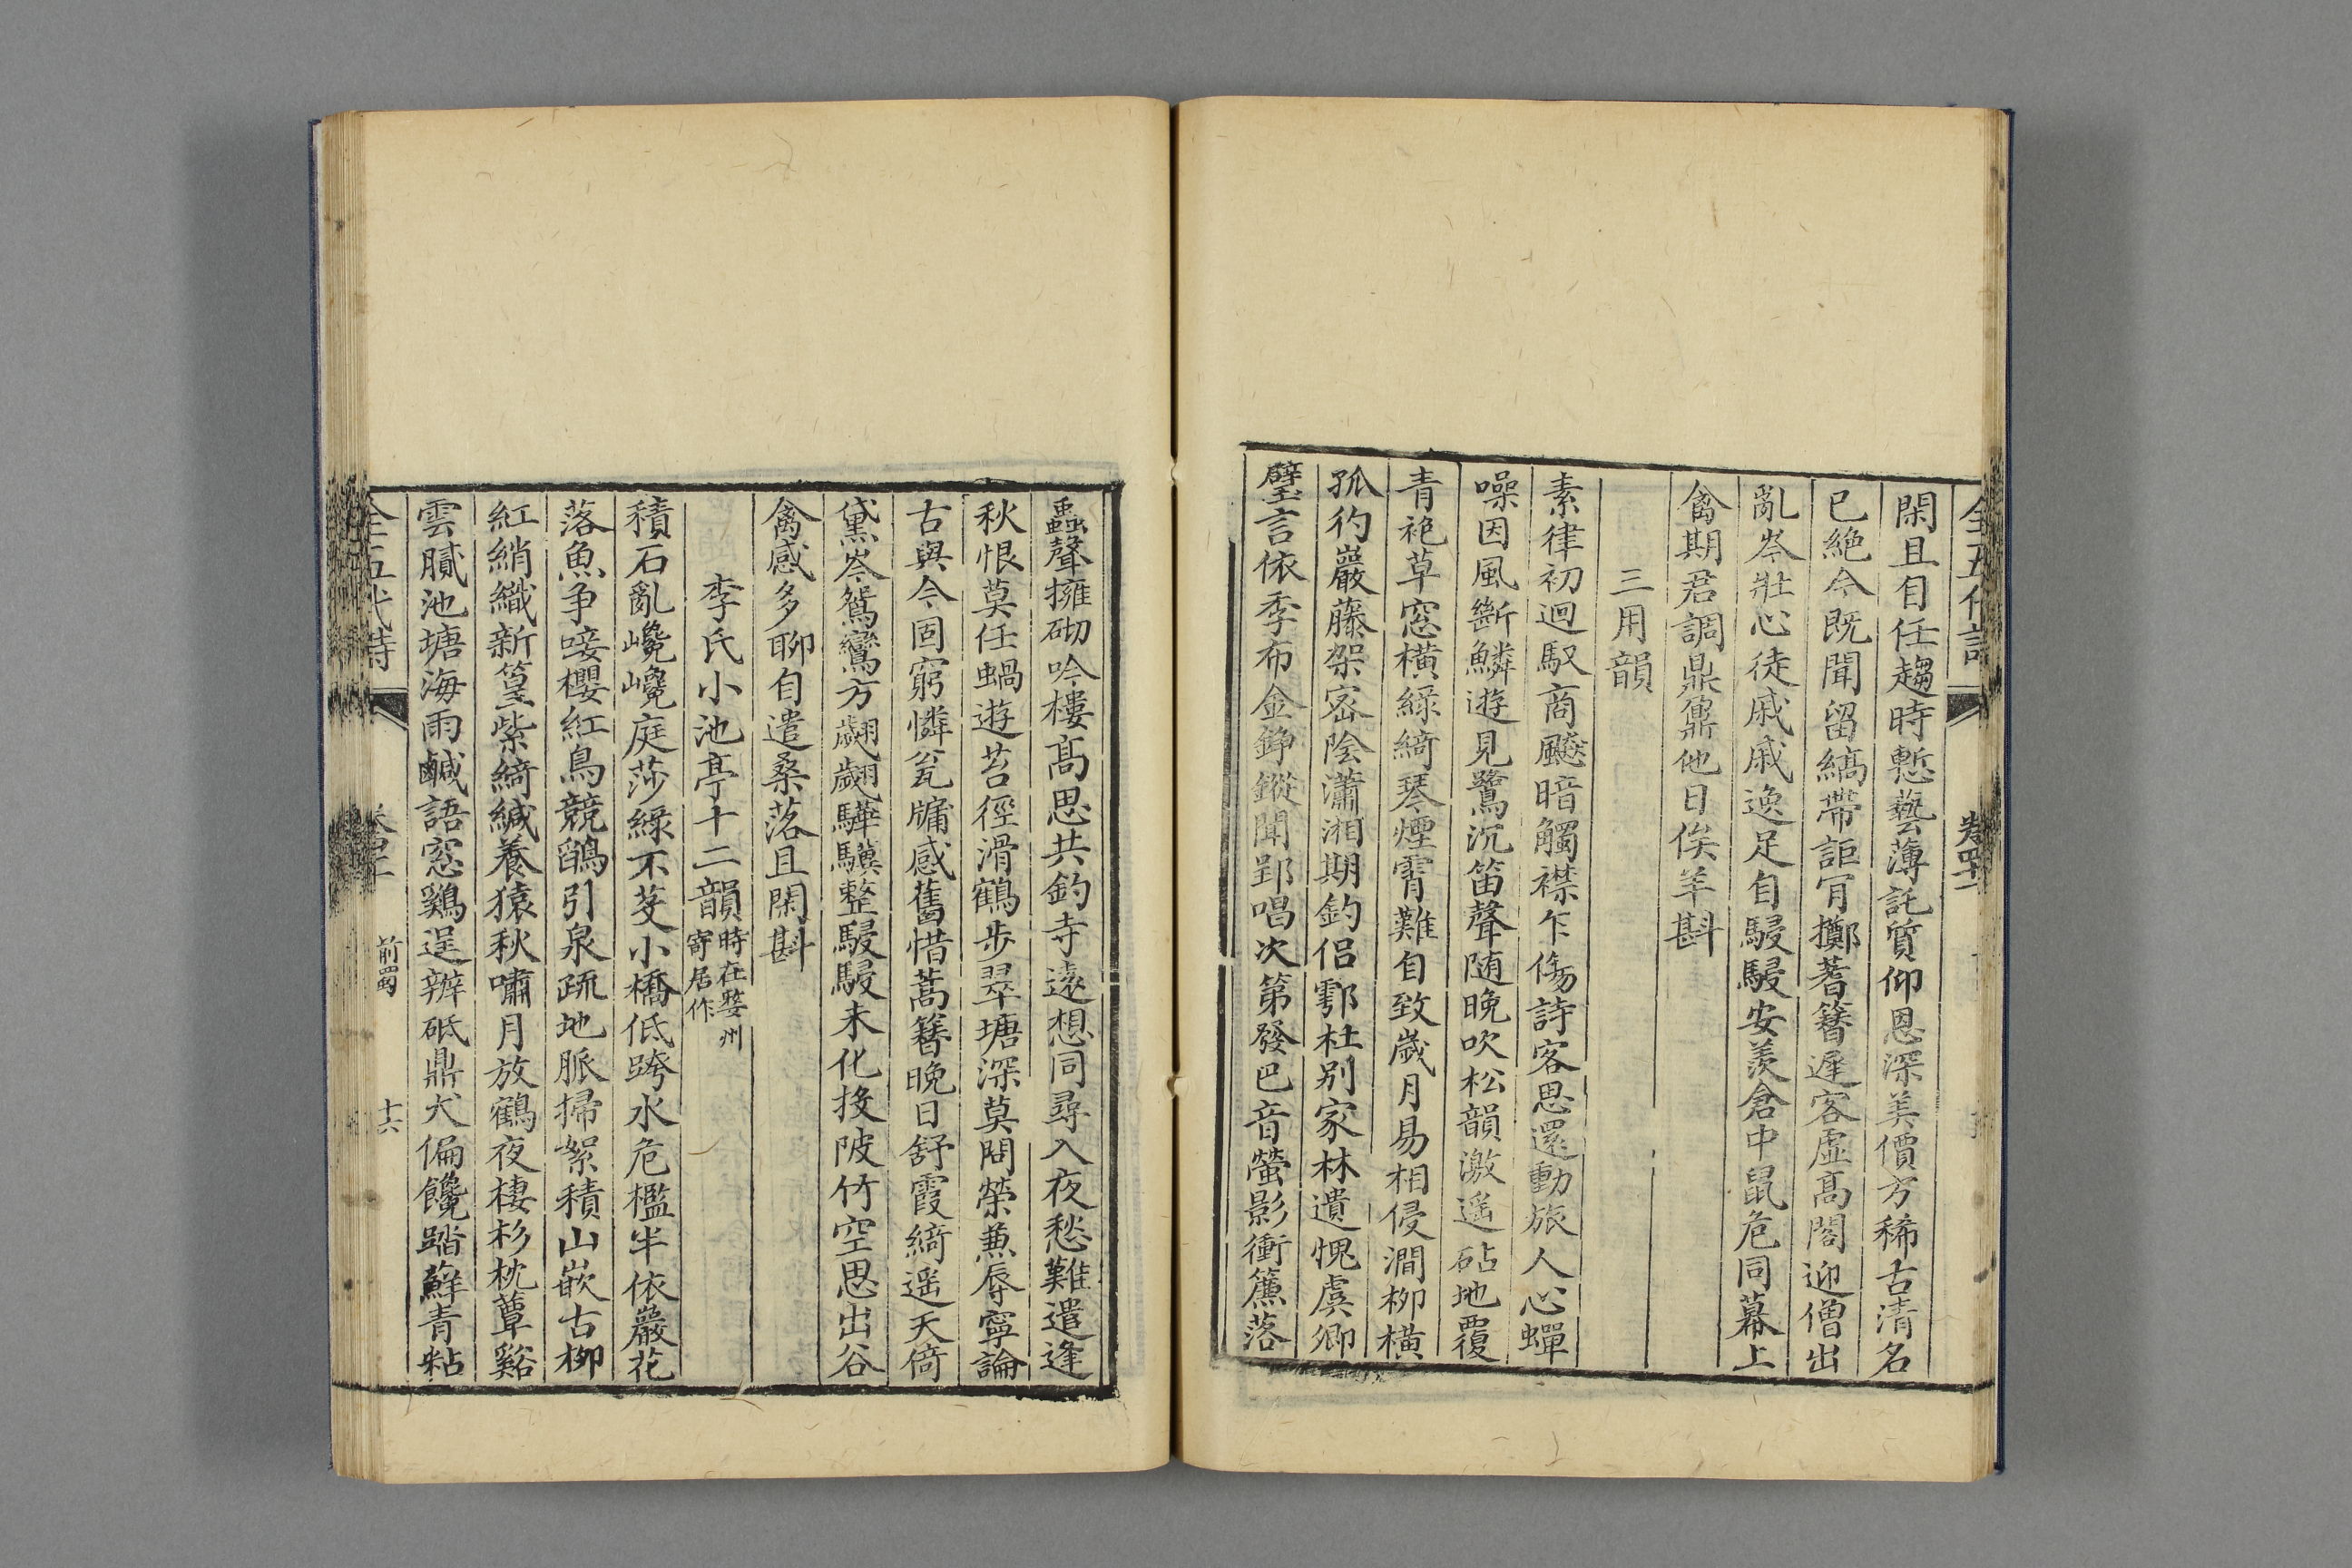 閑且自任趨時慙藝薄託質仰恩深美價方稀古清名
已絕今既聞留縞帶詎肎擲蓍簪遲客虛高閣迎僧出
亂岑壯心徒戚戚逸足自駸駸安羨倉中鼠危同幕上
禽期君調鼎鼐他日俟羊斟
三用韻
素律初迴馭商飇暗觸襟乍傷詩客思還動旅人心蟬
噪因風斷鱗遊見鷺沉笛聲隨晚吹松韻激遥砧地覆
青袍草窓橫綠綺琴煙霄難自致歲月易相侵澗柳橫
孤彴巖藤架密陰瀟湘期釣侶鄠杜别家林遺愧虞卿
璧言依季布金錚鏦聞郢唱次第發巴音螢影衝簾落
蟲聲擁砌吟樓高思共釣寺遠想同尋入夜愁難遣逢
秋恨莫任蝸遊苔徑滑鶴步翠塘深莫問榮兼辱寧論
古與今固窮憐瓮牖感舊惜蒿簪晚日舒霞綺遥天倚
黛岑鴛鸞方翽翽驊驥整駸駸未化投陂竹空思出谷
禽感多聊自遣桑落且閑斟
李氏小池亭十二韻時在婺州寄居作
積石亂巉巉庭莎綠不芟小橋低跨水危檻半依巖花
落魚爭唼櫻紅鳥競鵮引泉疏地脈掃絮積山嵌古柳
紅綃織新篁紫綺緘養猿秋嘯月放鶴夜棲杉枕簟谿
雲膩池塘海雨鹹語窓鷄逞辨砥鼎犬偏饞踏蘚青粘
全五代詩 前蜀 十六